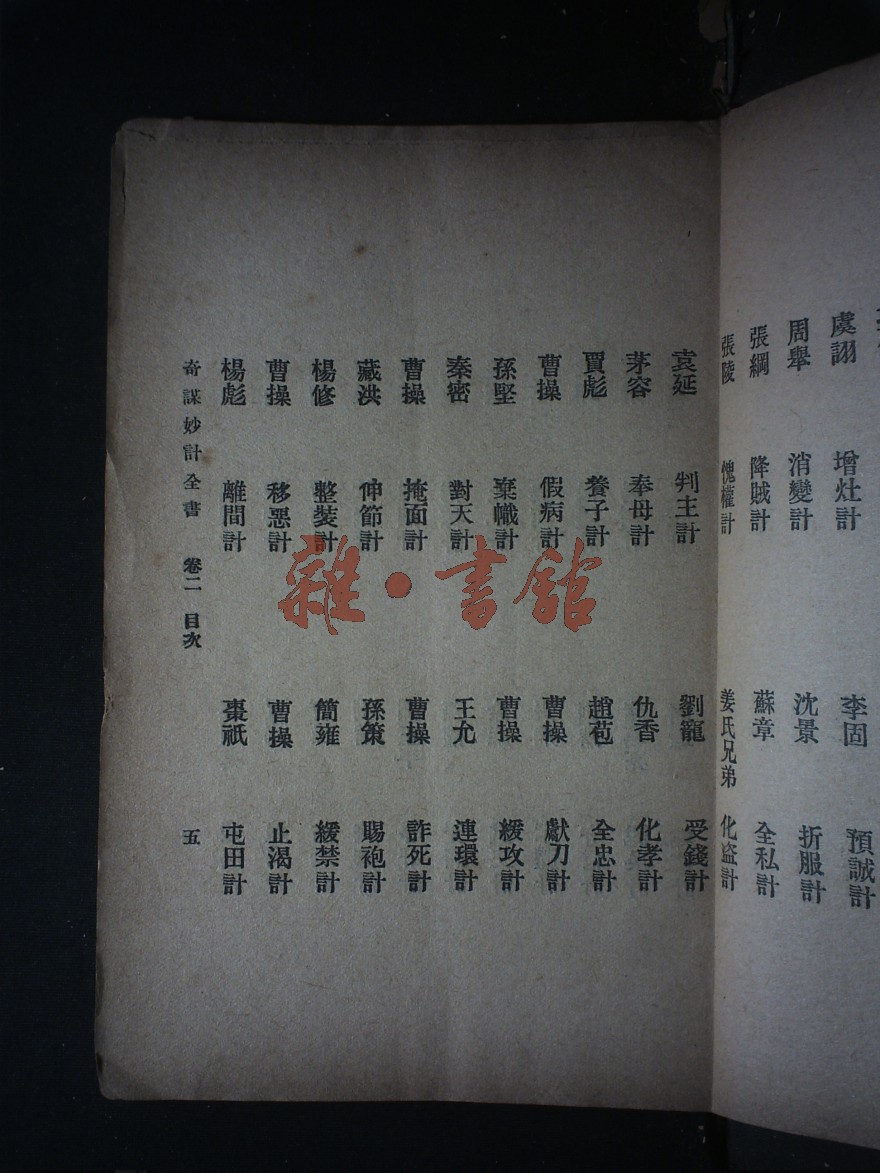 虞詡 增灶計 李固 預誠計
周舉 消變計 沈景 折服計
張綱 降賊計 蘇章 全私計
張陵 愧權計 姜氏兄弟 化盜計
袁延 判主計 劉寵 受錢計
茅容 奉母計 仇香 化孝計
賈彪 養子計 趙苞 全忠計
曹操 假病計 曹操 獻刀計
孫堅 棄幟計 曹操 緩攻計
秦密 對天計 王允 連環計
曹操 掩面計 曹操 詐死計
藏洪 伸節計 孫策 賜袍計
楊修 整裝計 簡雍 緩禁計
曹操 移惡計 曹操 止渴計
楊彪 離間計 棗祇 屯田計
奇謀妙計全書 卷二 目次 五
雜·書館